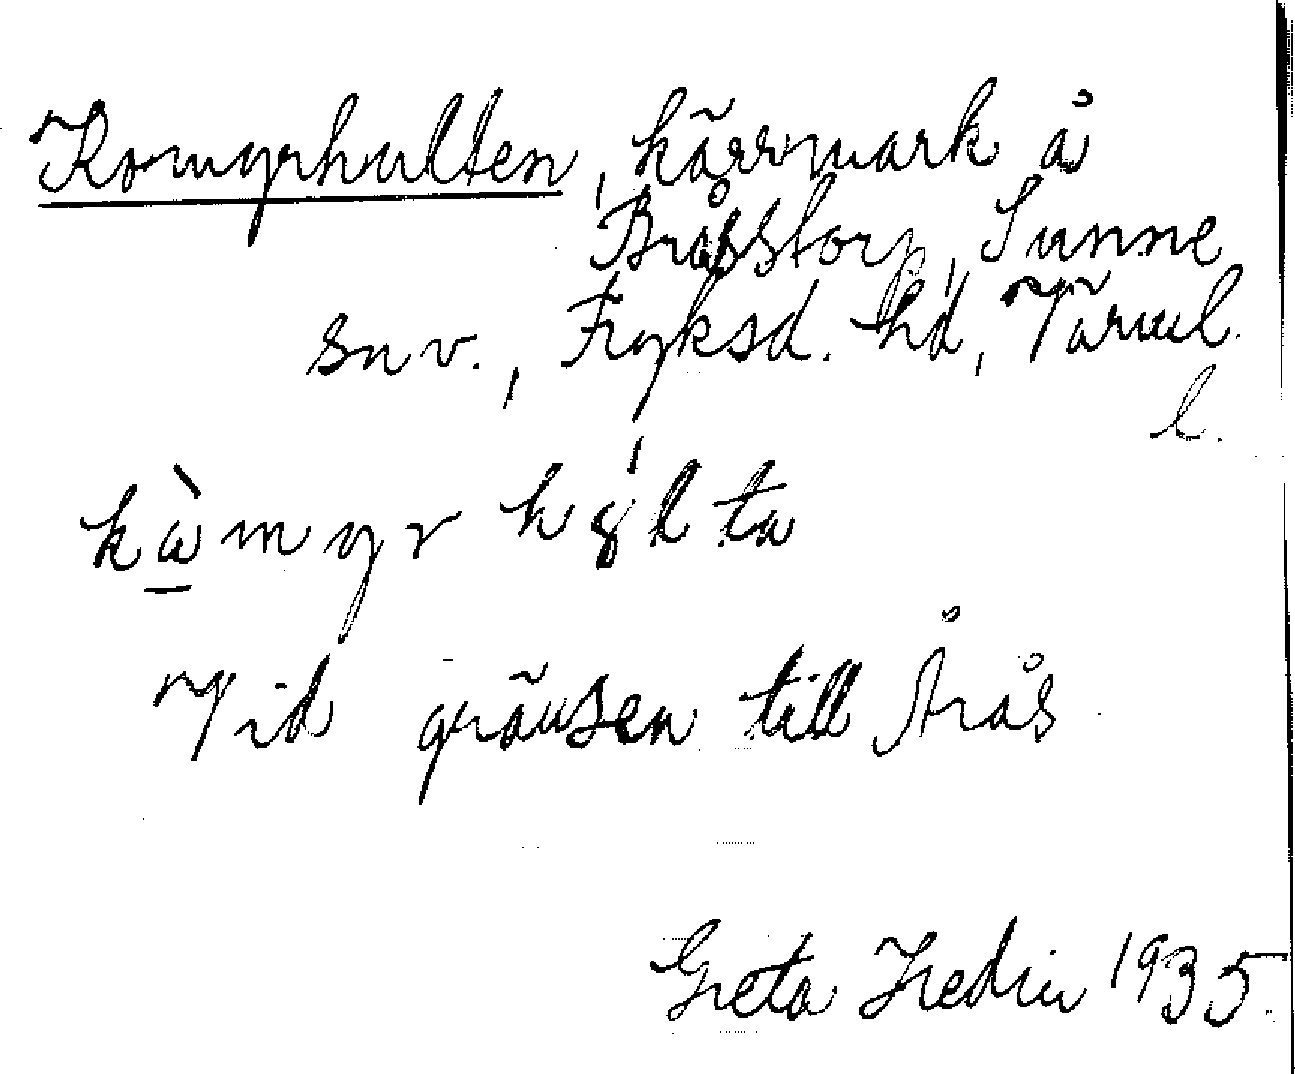 Komyrhulten, kärrmark å
Bråstorp, Sunne
sn v., Fryksd. hd, Värml.
l.
kòmyr hylta
Vid gränsen till Årås
Greta Hedin 1935.